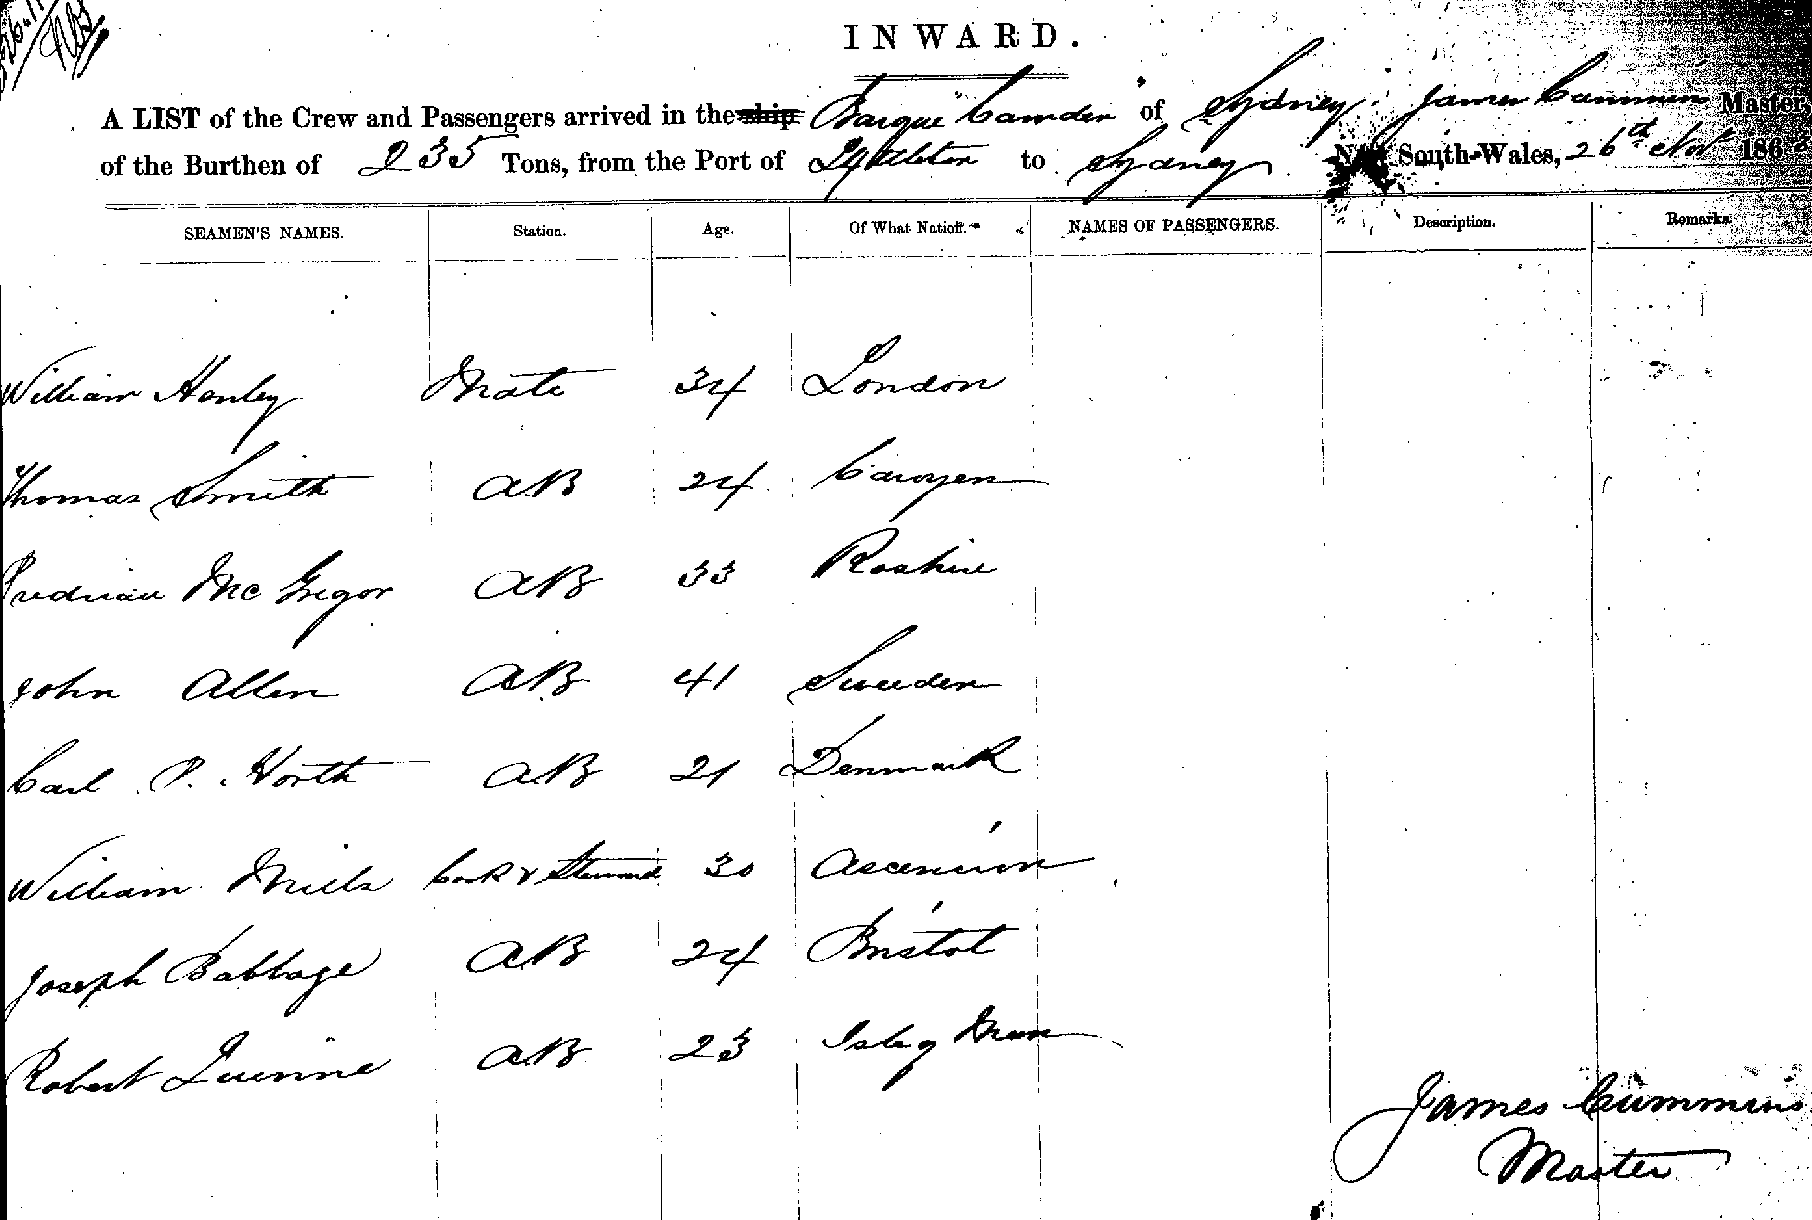 INWARD.
A LIST of the Crew and Passengers arrived in the ship Barque "Camden" of Sydney James Cummins Master,
of the Burthen of 235 Tons, from the Port of Lyttleton to Sydney South-Wales, 26th Nov 186
SEAMEN'S NAMES. Station. Age. Of What Nation. NAMES OF PASSENGERS. Description. Remarks
William Henley Mate 34 London
Thomas Smith AB 24
McGregor AB 33 Roshire
John Allen AB 41 Sweden
Carl P. Horth AB 21 Denmark
William Mills Cook & Steward 30 Ascension
Joseph Babbage AB 24 Bristol
Robert Quinne AB 23 Isle of Man
James Cummins
Master